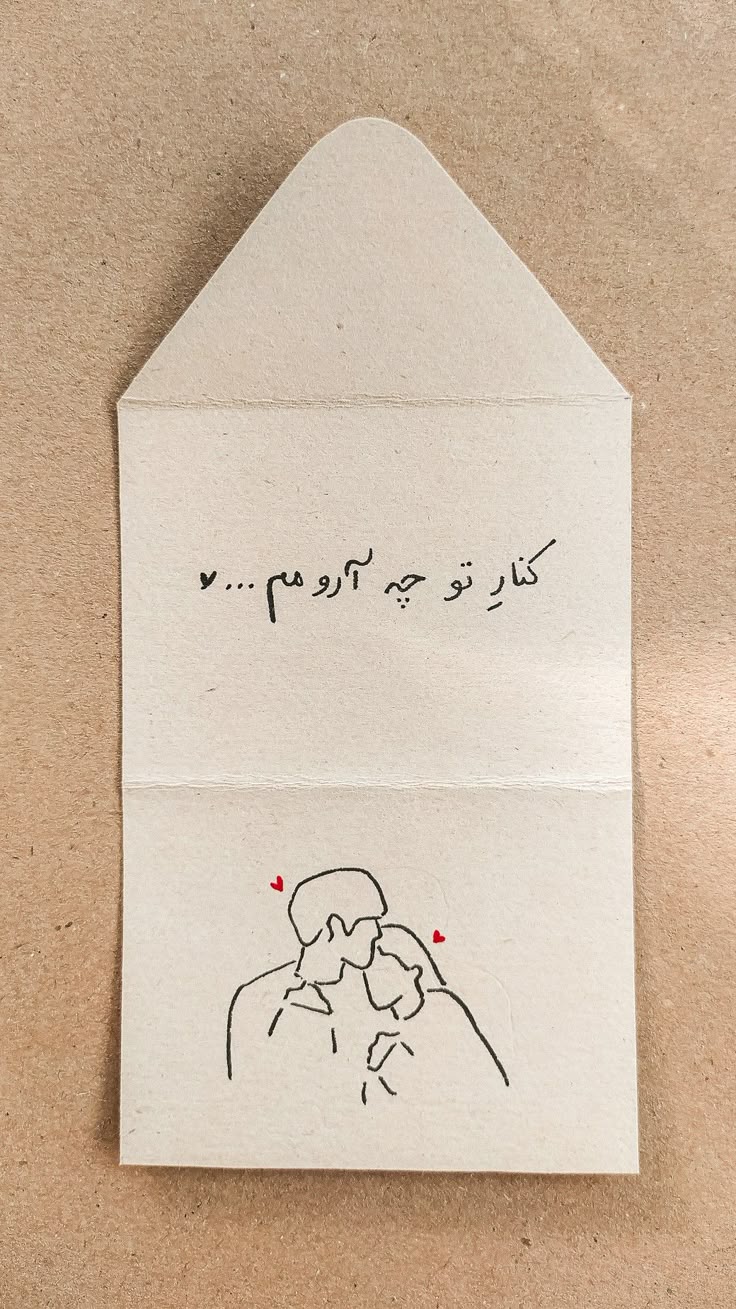 کنارِ تو چه آرومم...♥